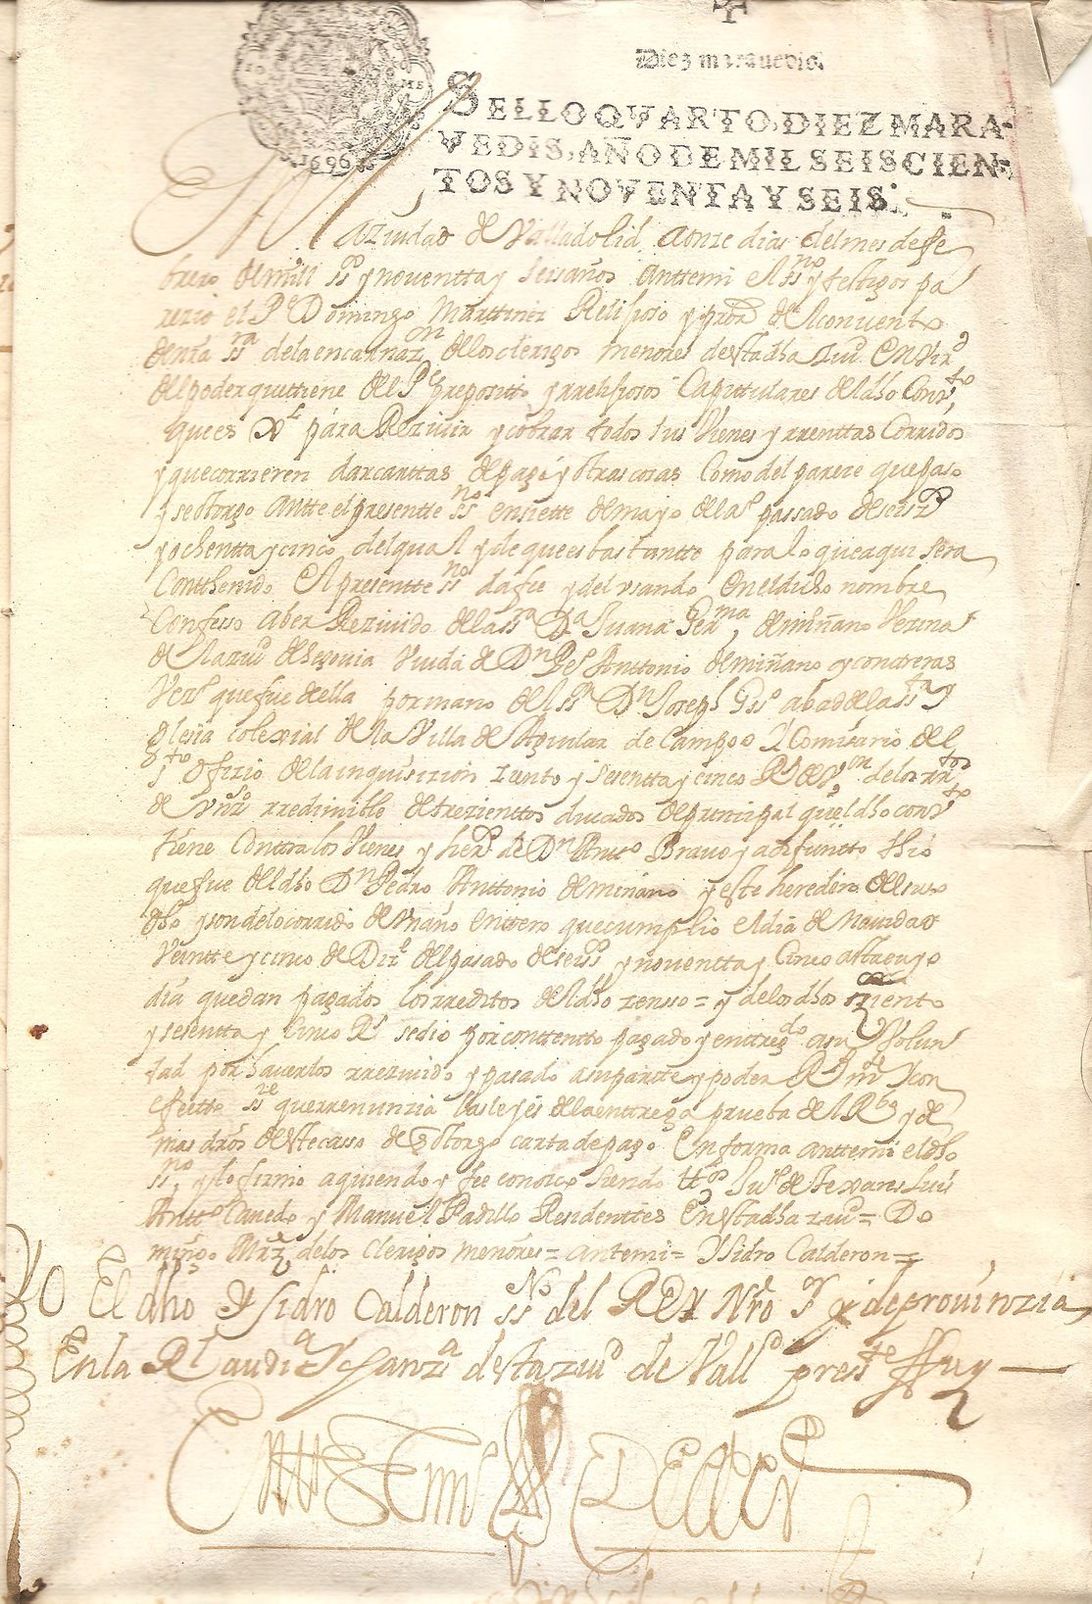 Diez maravedis.
SELLO QVARTO, DIEZ MARA-
VEDIS, AÑO DE MIL SEISCIEN-
TOS Y NOVENTA Y SEIS.
1696
ziudad de Valladolid a onze dias del mes de fe
brero de mill ss^o y noventta y seis años anttemi el ss^no y testigos pa
rezio el P^e Domingo Marttinez Relisioso y pro^r del convento
de nra ss^ra de la encarnaz^n de los clerigos menores de sta dha ziu^d en vir^d
del poder que ttiene del P^e preposito y rrelisiosos Capitulares del dho Conv^to
que es para Rezivir y cobrar todos sus vienes y rrenttas corridos
y que corrieren dar carttas de pago y otras cosas como del pareze que paso
y se otorgo antte el presentte ss^no en siette de mayo del passado de seis^s
y ochentta y cinco del qual y de que es bastantte para lo que aqui sera
Conthenido el presentte ss^no da fee y del vsando en el dicho nombre
Confeso aber Rezivido de la ss^ra D^a Juana Ger^ma de miñano vezina
de la ziu^d de segovia viuda de D^n P^o Anttonio de miñano y conttreras
vez^o que fue della por mano del ss^r D^n Joseph abad de la s^ta y
glesia colexial de la Villa de Aguilar de Campoo y Comisario del
s^to ofizio de la inquisizion zientto y sesentta y cinco R^s de v^on de los
de vn rredimible de trezienttos ducados de principal que el dho conv^to
tiene conttra los vienes y her^s de D^n Bravo ya difuntto thio
que fue del dho D^n Pedro Anttonio de miñano y este heredero del suso
dho y son de lo corrido de vn año enttero que cumplio el dia de Navidad
veintte y cinco de Diz^e del pasado de seis^s y noventta y cinco asta cuyo
dia quedan pagados los rreditos del dho zenso = y de los dhos ziento
y sesentta y cinco R^s se dio por conttentto pagado y enttreg^do a su volun
tad por haverlos rrezivido y pasado a su partte y poder con
efectto que rrenunzia las leyes de la enttrega prueba del R^bo y de
mas dros deste casso de otorgo carta de pago en forma anttemi el dho
ss^no y lo firmo a quien doy fee conozco siendo tt^os Ju^o de
Antt^o Canedo y Manuel Padillo Residenttes en sta dha ziu^d = Do
mingo Mrz de los Clerigos menores = antemi = Ysidro Calderon =
Yo El dho Ysidro Calderon ss^no del REY Nro s^r y de provinzia
En la R^l audi^a y chanz^a de sta ziu^d de Vall^d pres^te fuy